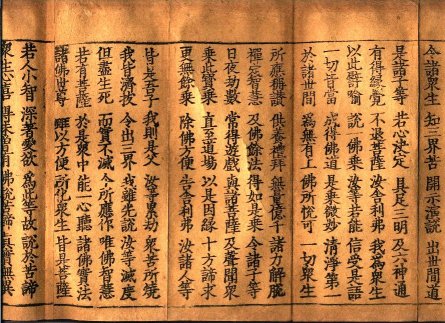 令諸衆生 知三界苦 開示演說 出世間道
是諸子等 若心決定 具足三明 及六神通
有得緣覺 不退菩薩 汝舍利弗 我爲衆生
以此譬喻 說一佛乘 汝等若能 信受是語
一切皆當 成得佛道 是乘微妙 清淨第一
於諸世間 爲無有上 佛所悅可 一切衆生
所應稱讃 供養禮拜 無量億千 諸力解脫
禪定智慧 及佛餘法 得如是乘 令諸子等
日夜劫數 常得遊戲 與諸菩薩 及聲聞衆
乘此寶乘 直至道場 以是因緣 十方諦求
更無餘乘 除佛方便 告舍利弗 汝諸人等
皆是吾子 我則是父 汝等累劫 衆苦所燒
我皆濟拔 令出三界 我雖先說 汝等滅度
但盡生死 而實不滅 今所應作 唯佛智慧
若有菩薩 於是衆中 能一心聽 諸佛實法
諸佛世尊 雖以方便 所化衆生 皆是菩薩
若人小智 深著愛欲 爲此等故 說於苦諦
衆生心喜 得未曾有 佛說苦諦 真實無異